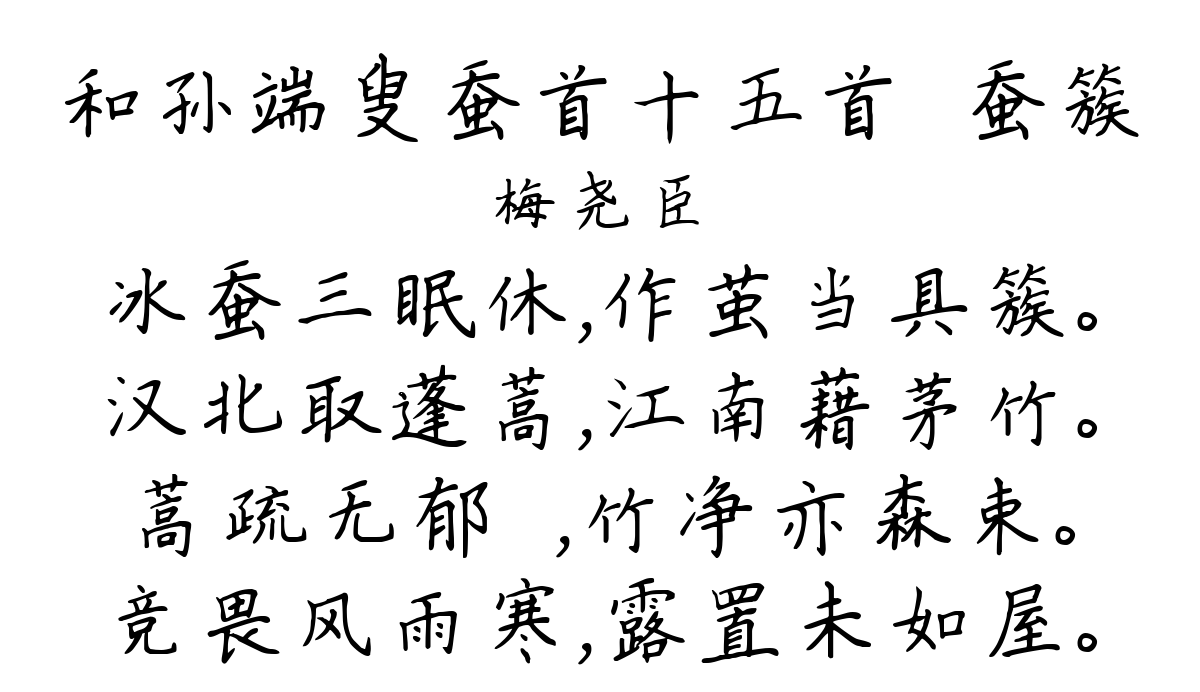 和孙端叟蚕首十五首 蚕簇
梅尧臣
冰蚕三眠休,作茧当具簇。
汉北取蓬蒿,江南藉茅竹。
蒿疏无郁 ,竹净亦森束。
竞畏风雨寒,露置未如屋。